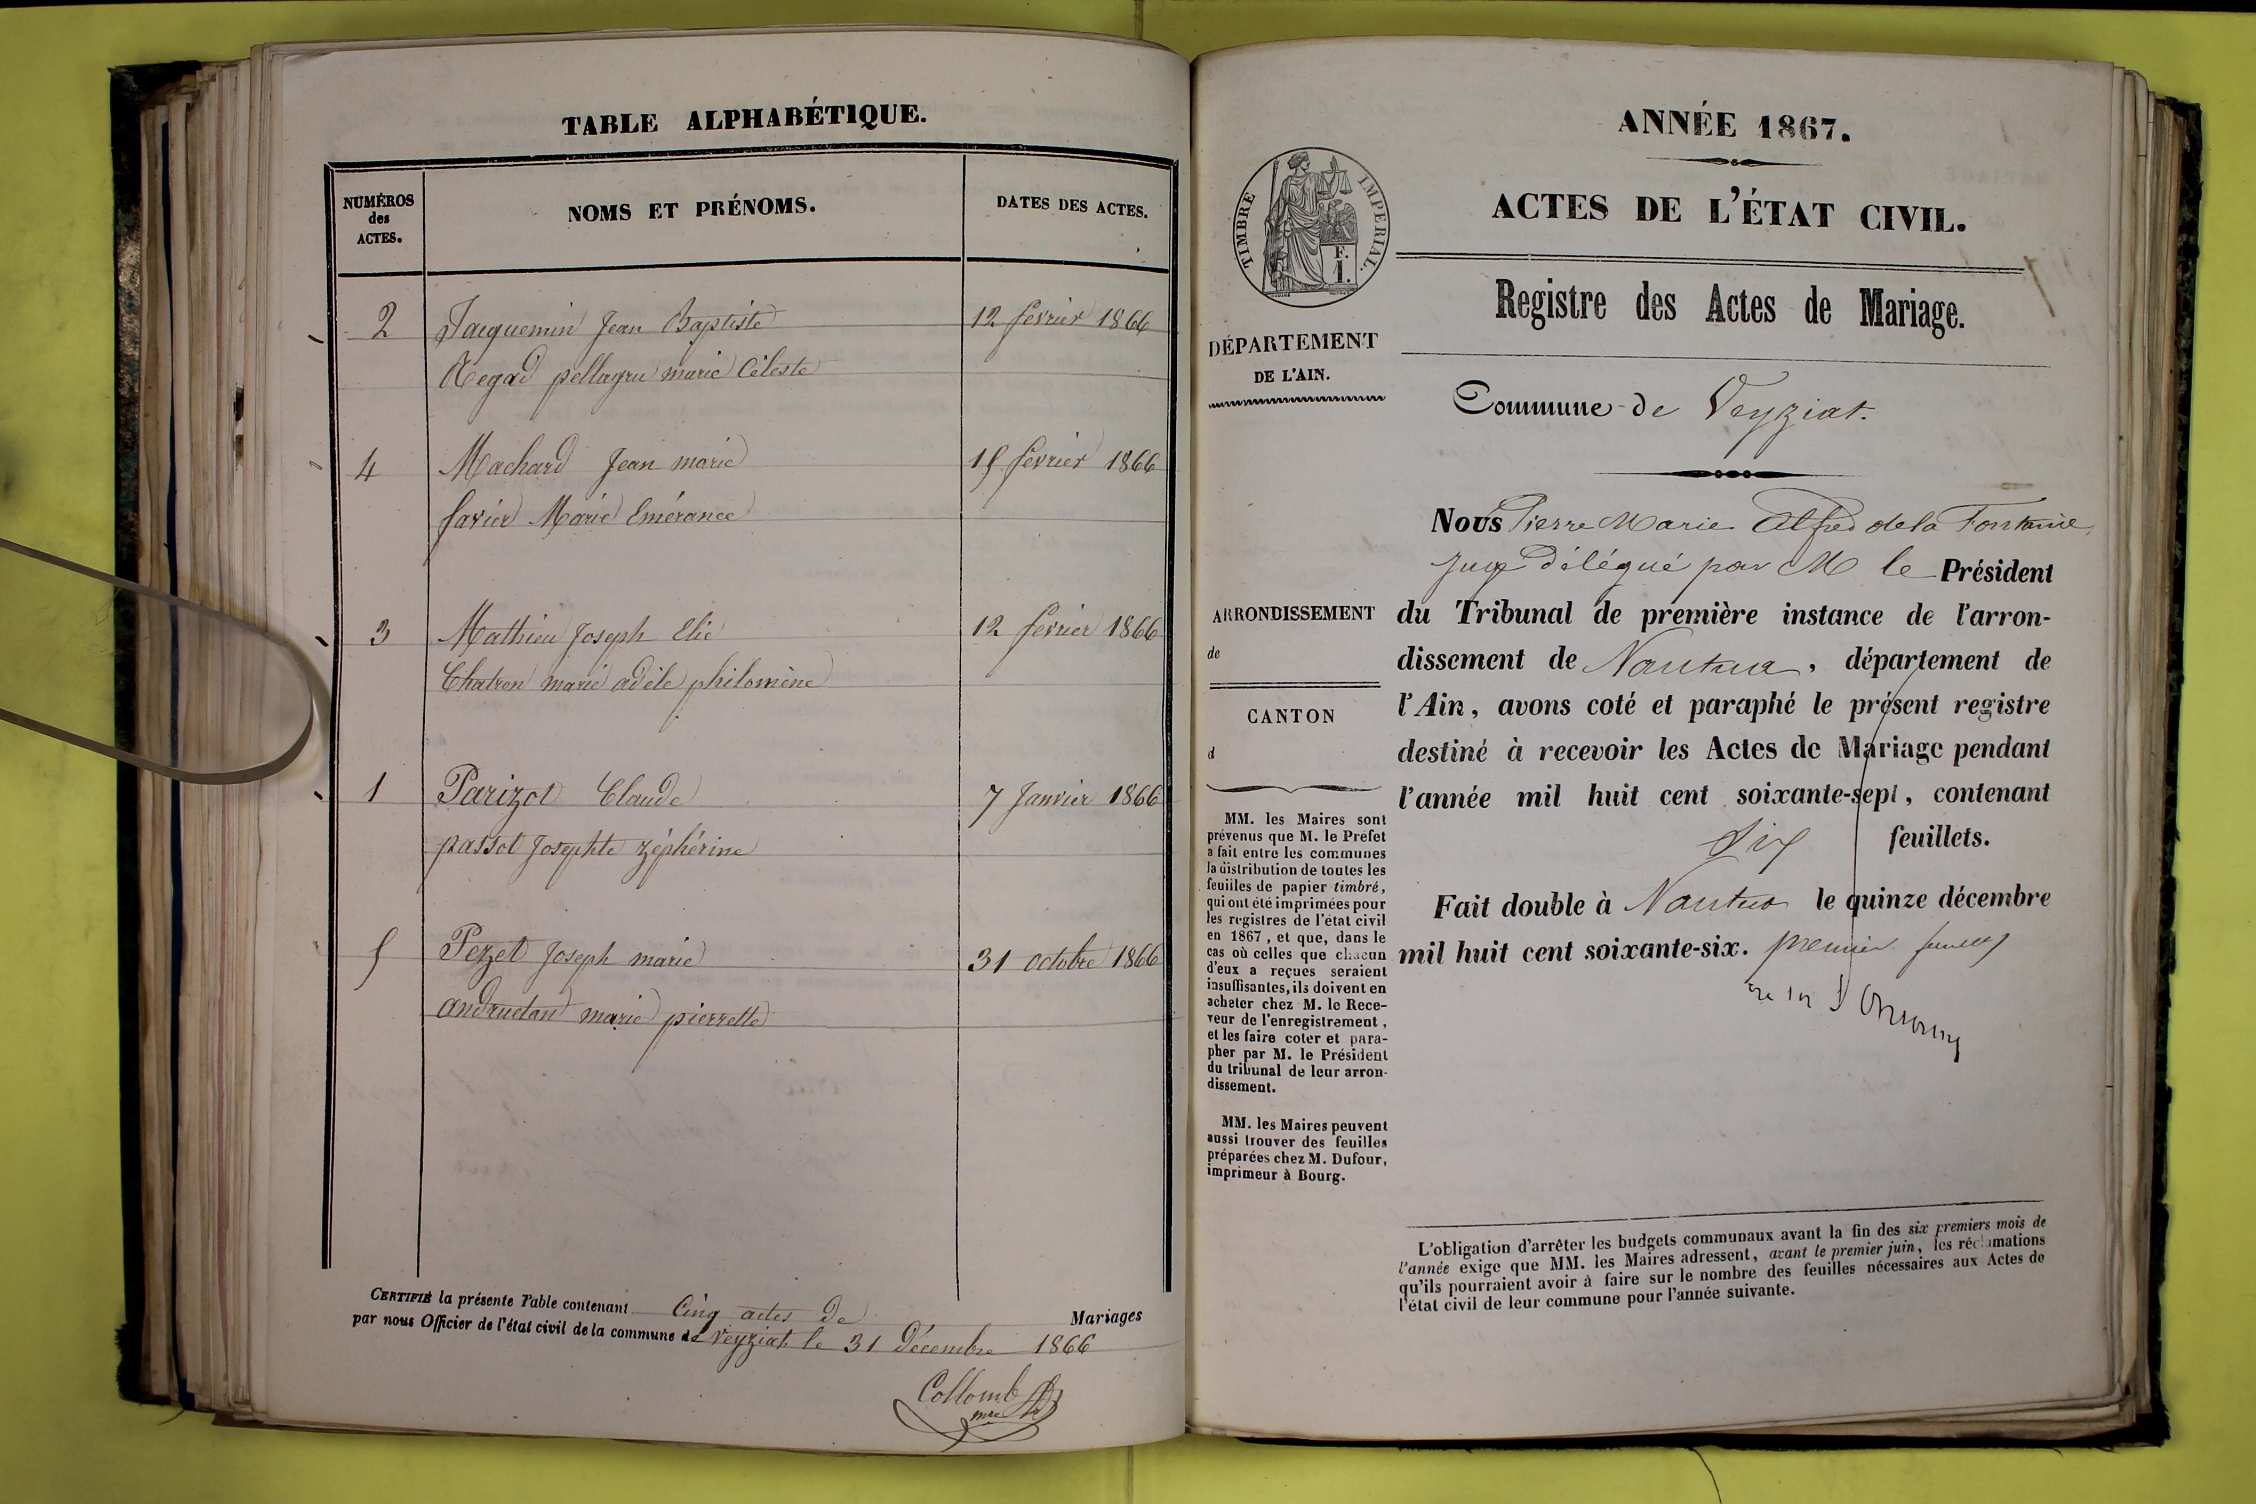 TABLE ALPHABÉTIQUE.
NUMÉROS
des
ACTES.
NOMS ET PRÉNOMS.
DATES DES ACTES.
2 Jacquemin Jean Baptiste 12 février 1866
Regad pellagru marie Céleste
4 Machard Jean marie 15 février 1866
favier Marie Emérance
3 Mathieu Joseph Elie 12 février 1866
Chatron marie adèle philomène
1 Parizot Claude 7 Janvier 1866
passot Josephte zéphérine
5 Pezet Joseph marie 31 octobre 1866
andruetan marie pierrette
CERTIFIÉ la présente Table contenant Cinq actes de Mariages
par nous Officier de l'état civil de la commune de Veyziat le 31 Décembre 1866
Collomb
mre
ANNÉE 1867.
ACTES DE L'ÉTAT CIVIL.
TIMBRE IMPERIAL.
F.
1.
Registre des Actes de Mariage.
DÉPARTEMENT
DE L'AIN.
Commune de Veyziat.
Nous Pierre Marie Alfred de la Fontaine
Juge Délégué par M le Président
du Tribunal de première instance de l'arron-
dissement de Nantua, département de
l'Ain, avons coté et paraphé le présent registre
destiné à recevoir les Actes de Mariage pendant
l'année mil huit cent soixante-sept, contenant
Six feuillets.
Fait double à Nantua le quinze décembre
mil huit cent soixante-six. premier
ARRONDISSEMENT
de
CANTON
d
MM. les Maires sont
prévenus que M. le Préfet
a fait entre les communes
la distribution de toutes les
feuilles de papier timbré,
qui ont été imprimées pour
les registres de l'état civil
en 1867, et que, dans le
cas où celles que chacun
d'eux a reçues seraient
insuffisantes, ils doivent en
acheter chez M. le Rece-
veur de l'enregistrement,
et les faire coter et para-
pher par M. le Président
du tribunal de leur arron-
dissement.
MM. les Maires peuvent
aussi trouver des feuilles
préparées chez M. Dufour,
imprimeur à Bourg.
L'obligation d'arrêter les budgets communaux avant la fin des six premiers mois de
l'année exige que MM. les Maires adressent, avant le premier juin, les réclamations
qu'ils pourraient avoir à faire sur le nombre des feuilles nécessaires aux Actes de
l'état civil de leur commune pour l'année suivante.